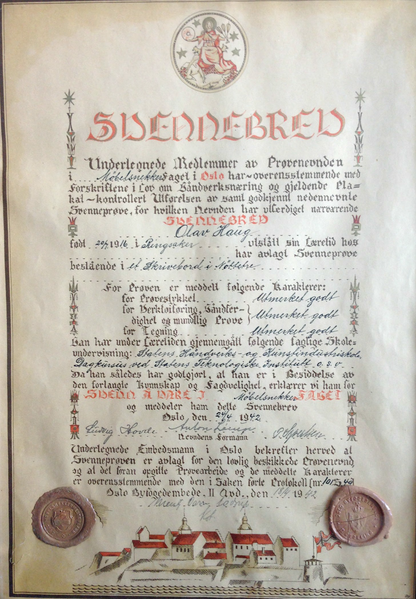 SVENNEBREV
Underlegnede Medlemmer av Prøvenevnden
i Møbelsnekkerfaget i Oslo har overensstemmende med
Forskriftene i Lov om Håndverksnæring og gjeldende Pla-
kat kontrollert Utførelsen av samt godkjent nedennevnte
Svenneprøve, for hvilken Nevnden har utferdiget nærværende
SVENNEBREV
Olav Haug
født 1916, i Ringsaker utstått sin Læretid hos
har avlagt Svenneprøve
bestående i et Skrivebord i Nøttetre
For Prøven er meddelt følgende Karakterer:
for Prøvestykket Utmerket godt
for Verktøiføring, Håndfer-
dighet og mundtlig Prøve Utmerket godt
for Tegning Utmerket godt
Han har under Læretiden gjennemgått følgende faglige Skole-
undervisning: Statens Håndverks- og Kunstindustriskole,
Dagkursus ved Statens Teknologiske Institutt o.s.v.
Da han således har godtgjort, at han er i Besiddelse av
den forlangte Kunnskap og Fagdyktighet, erklærer vi ham for
SVENN Å VÆRE I Møbelsnekker FAGET
og meddeler ham dette Svennebrev
Oslo, den 27/4 1942
Ludvig Anton
Nevndens Formann
Underlegnede Embedsmann i Oslo bekrefter herved at
Svenneprøven er avlagt for den lovlig beskikkede Prøvenevnd
og at det foran opgitte Prøvearbeide og de meddelte Karakterer
er overensstemmende med den i Saken førte Protokoll nr.
Oslo Byfogdembede, II Avd., den 1942